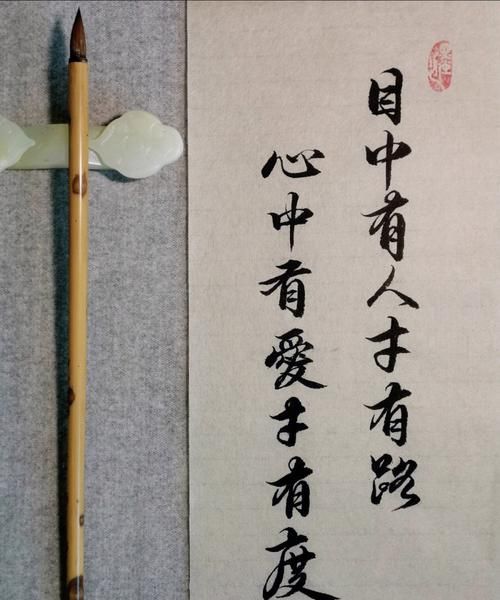 目中有人才有路
心中有愛才有度